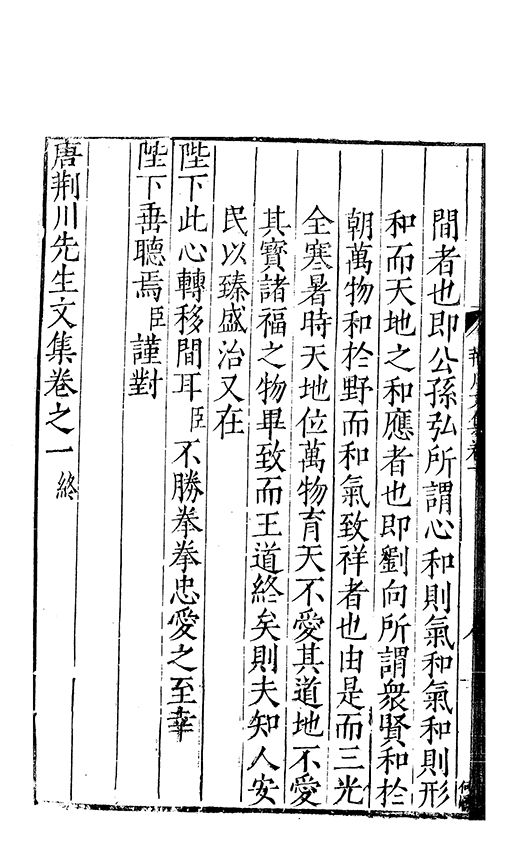 間者也即公孫弘所謂心和則氣和氣和則形
和而天地之和應者也即劉向所謂衆賢和於
朝萬物和於野而和氣致祥者也由是而三光
全寒暑時天地位萬物育天不愛其道地不愛
其寶諸福之物畢致而王道終矣則夫知人安
民以臻盛治又在
陛下此心轉移間耳臣不勝拳拳忠愛之至幸
陛下垂聽焉臣謹對
唐荆川先生文集卷之一 終